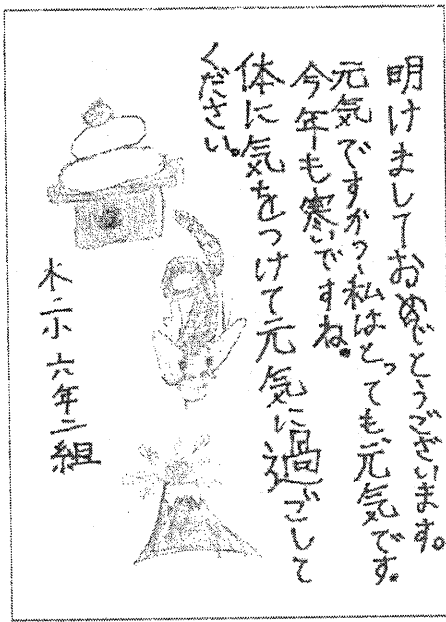 明けましておめでとうございます。
元気ですか?私はとっても、元気です。
今年も寒いですね。
体に気をつけて元気に過ごして
ください。
木二小六年二組